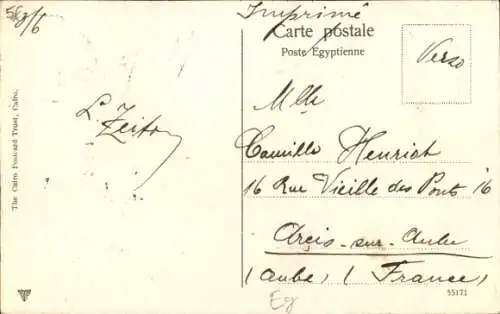 Imprimé
Carte postale
Poste Egyptienne
Verso
Mlle
Camille Henriot
16 Rue Vieille des Ponts 16
Arcis-sur-Aube
(Aube) (France)
Eg
55171
L. Zeito
The Cairo Postcard Trust, Cairo.